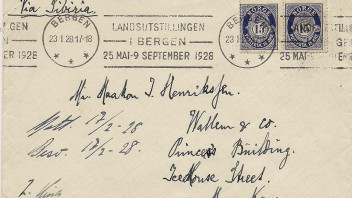 Via Sibiria
BERGEN
23 1 28 17-18
LANDSUTSTILLINGEN
I BERGEN
25 MAI-9 SEPTEMBER 1928
BERGEN
23 1
NORGE
15
NORGE
15
GEN
ER 1928
25 MAI
Mr. Haakon J. Henriksen.
Wallem & Co.
Prince's Building.
IceHouse Street.
Mott. 17/2-28
Besv. 17/2-28